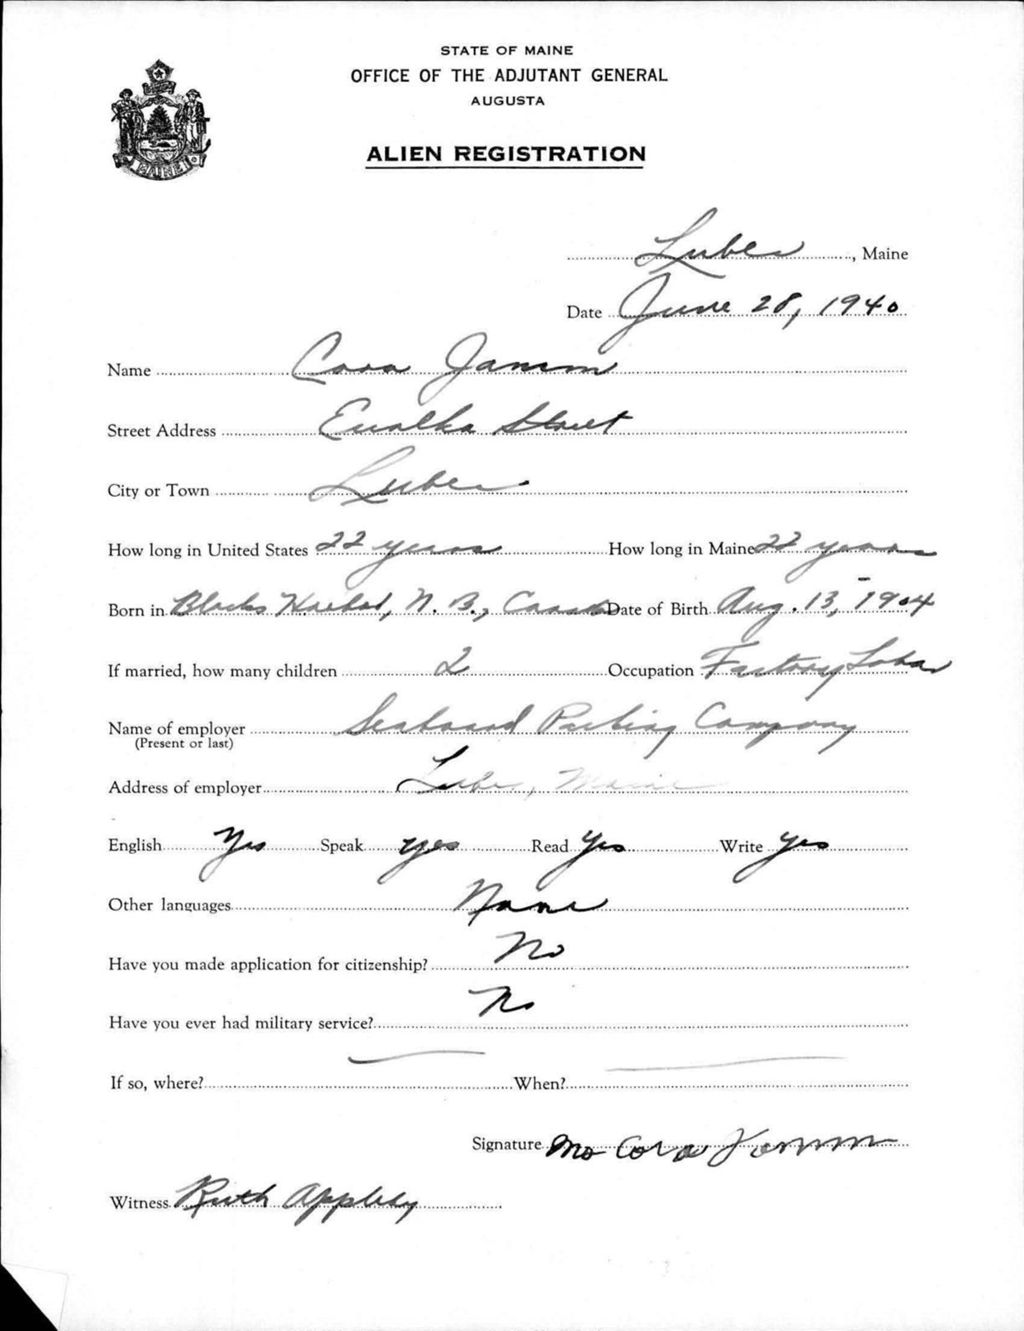 STATE OF MAINE
OFFICE OF THE ADJUTANT GENERAL
AUGUSTA
ALIEN REGISTRATION
Lubec, Maine
Date June 28, 1940
Name Cora Jamm
Street Address Street
City or Town Lubec
How long in United States 22 years How long in Maine 22 years
Born in Blacks Harbor, N. B., Canada Date of Birth Aug. 13, 1904
If married, how many children 2 Occupation Factory Labor
Name of employer Seaboard Packing Company
(Present or last)
Address of employer Lubec, Maine
English Yes Speak yes Read Yes Write Yes
Other languages None
Have you made application for citizenship? No
Have you ever had military service? No
If so, where? — When? —
Signature Cora
Witness Ruth Appleby